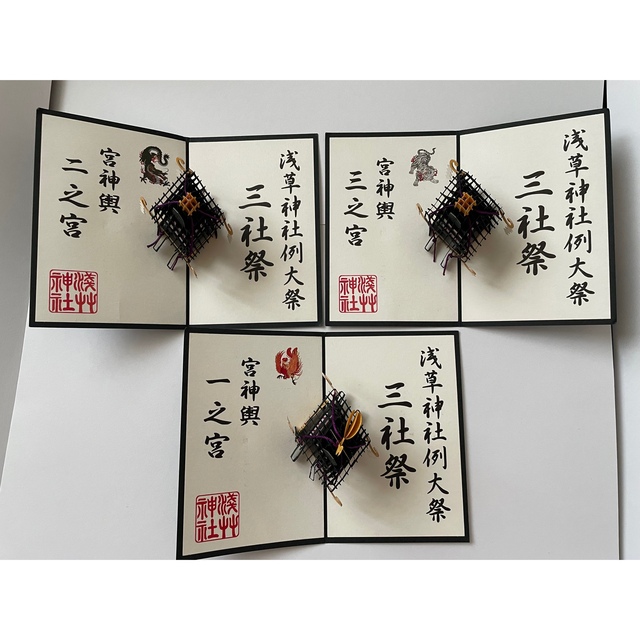 浅草神社例大祭
三社祭
宮神輿
二之宮
浅草神社
浅草神社例大祭
三社祭
宮神輿
三之宮
浅草神社
浅草神社例大祭
三社祭
宮神輿
一之宮
浅草神社